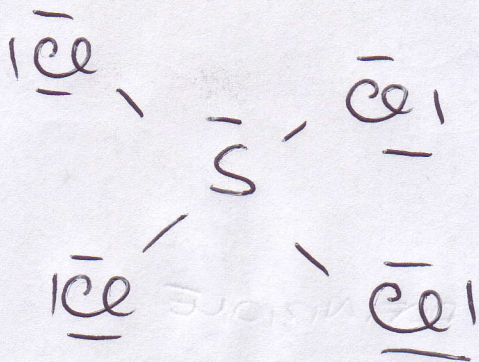 Cl Cl
S
Cl Cl